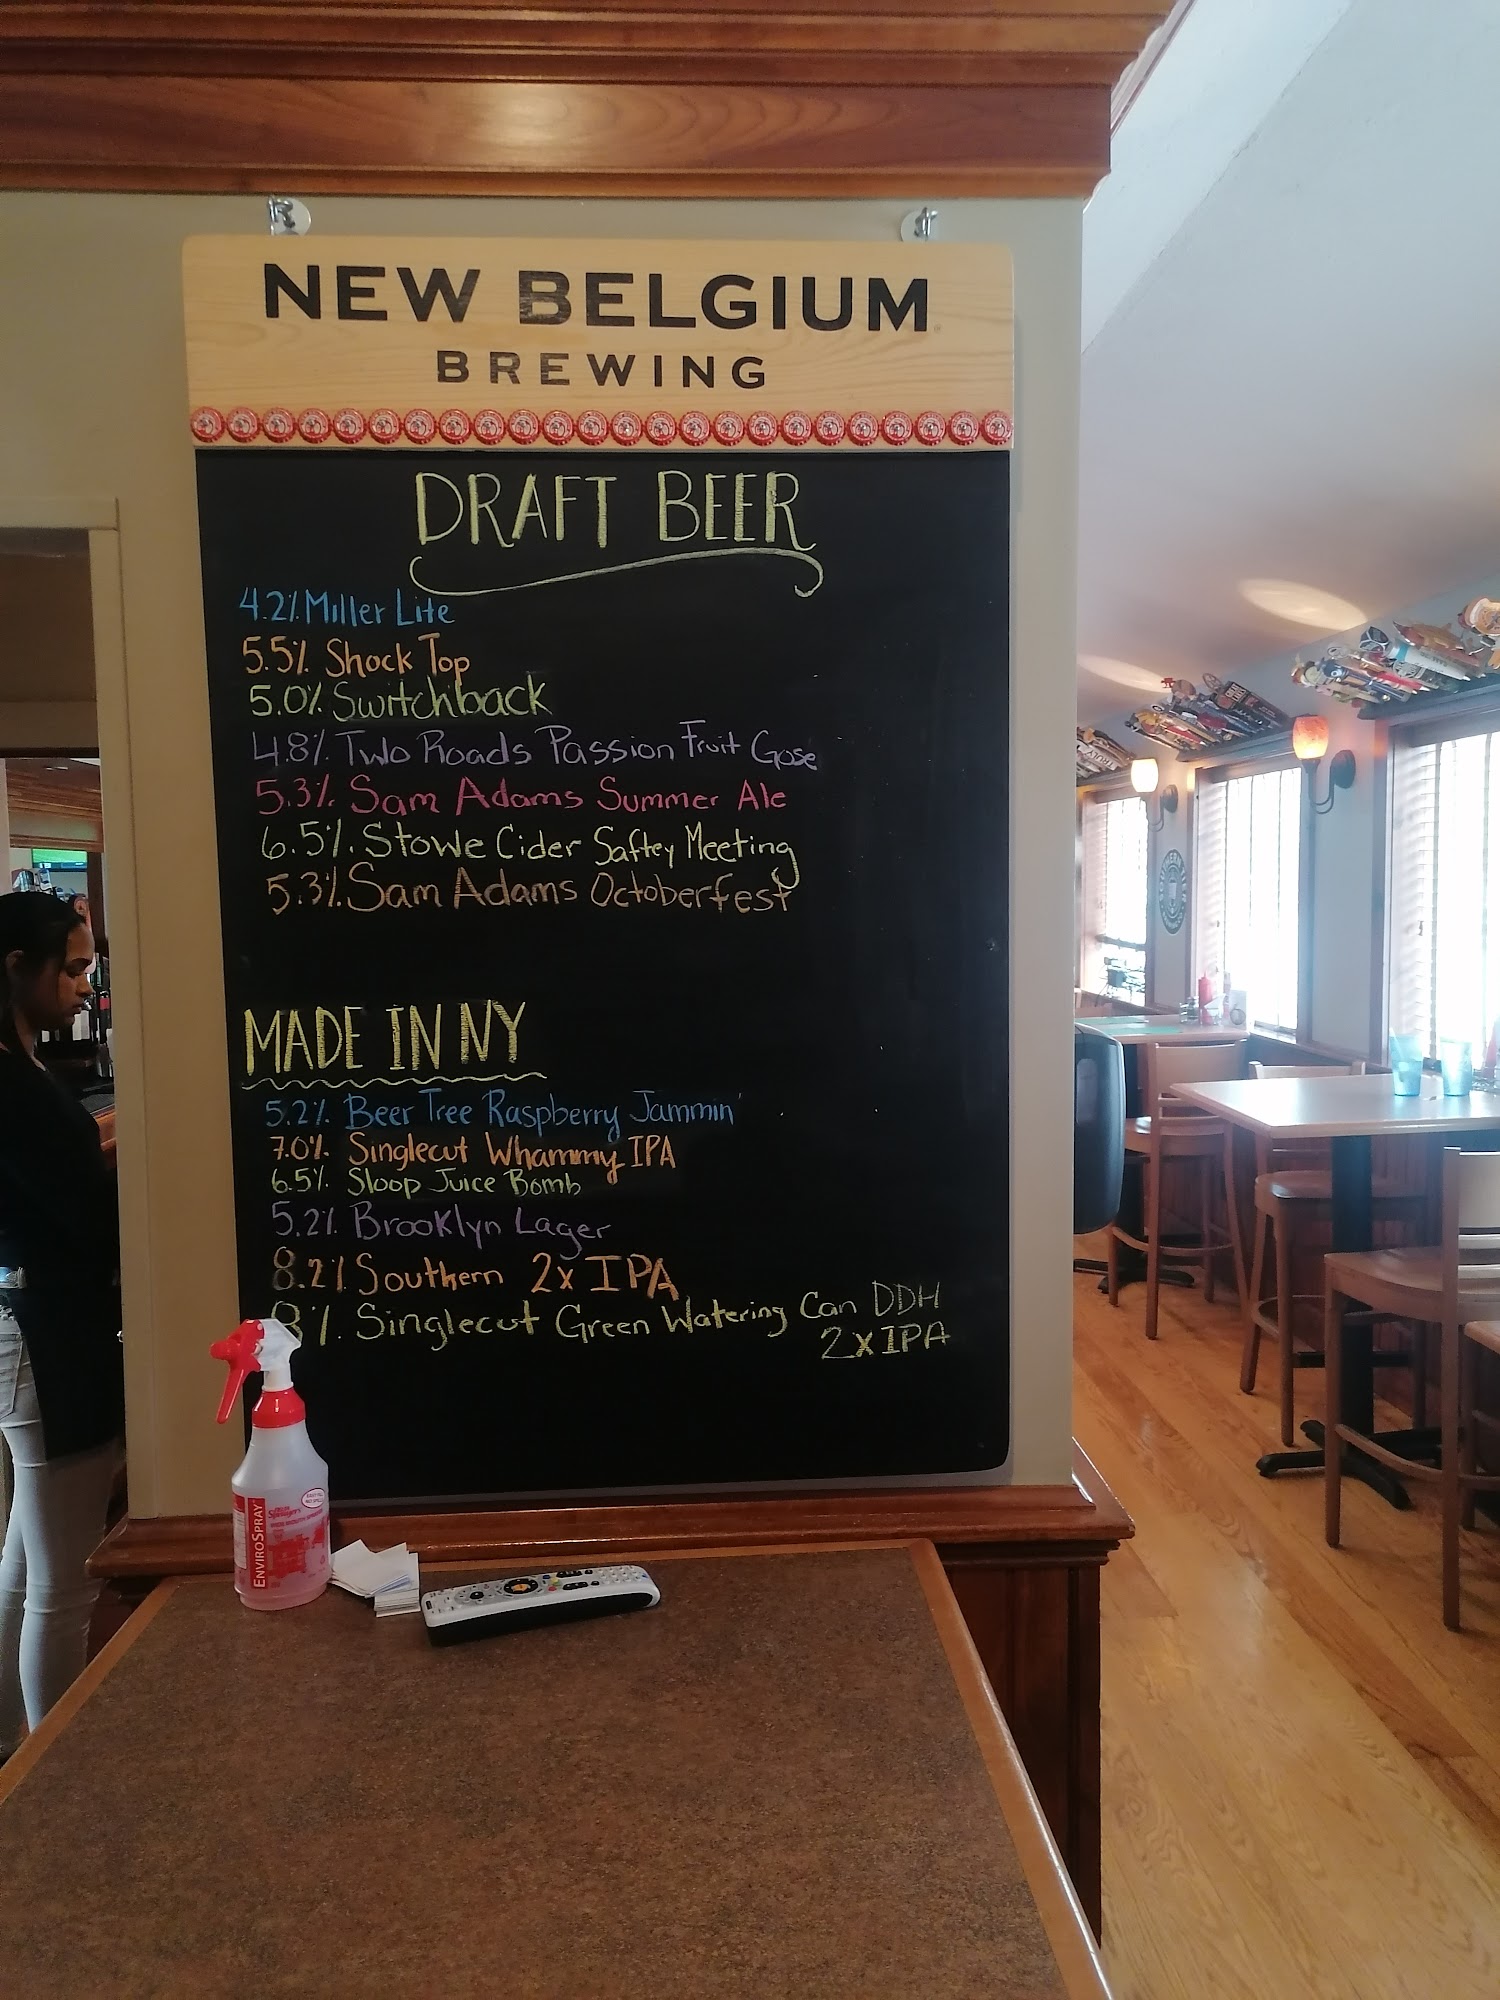 NEW BELGIUM
BREWING
DRAFT BEER
4.2% Miller Lite
5.5% Shock Top
5.0% Switchback
4.8% Two Roads Passion Fruit Gose
5.3% Sam Adams Summer Ale
6.5% Stowe Cider Saftey Meeting
5.3% Sam Adams Octoberfest
MADE IN NY
5.2% Beer Tree Raspberry Jammin'
7.0% Singlecut Whammy IPA
6.5% Sloop Juice Bomb
5.2% Brooklyn Lager
8.2% Southern 2x IPA
8% Singlecut Green Watering Can DDH
2x IPA
ENVIROSPRAY
Sprayers